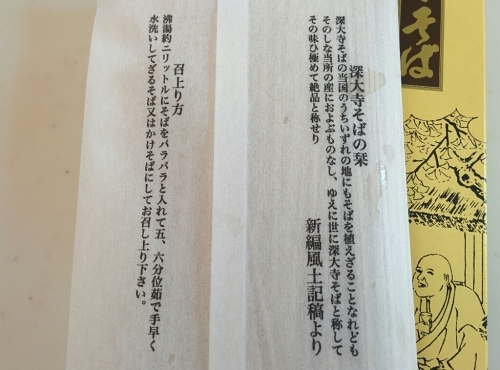 そば
深大寺そばの栞
深大寺そばの当国のうちいずれの地にもそばを植えざることなれども
そのしな当所の産におよぶものなし、ゆえに世に深大寺そばと称して
その味ひ極めて絶品と称せり
新編風土記稿より
召上り方
沸湯約ニリットルにそばをパラパラと入れて五、六分位茹で手早く
水洗いしてざるそば又はかけそばにしてお召し上り下さい。